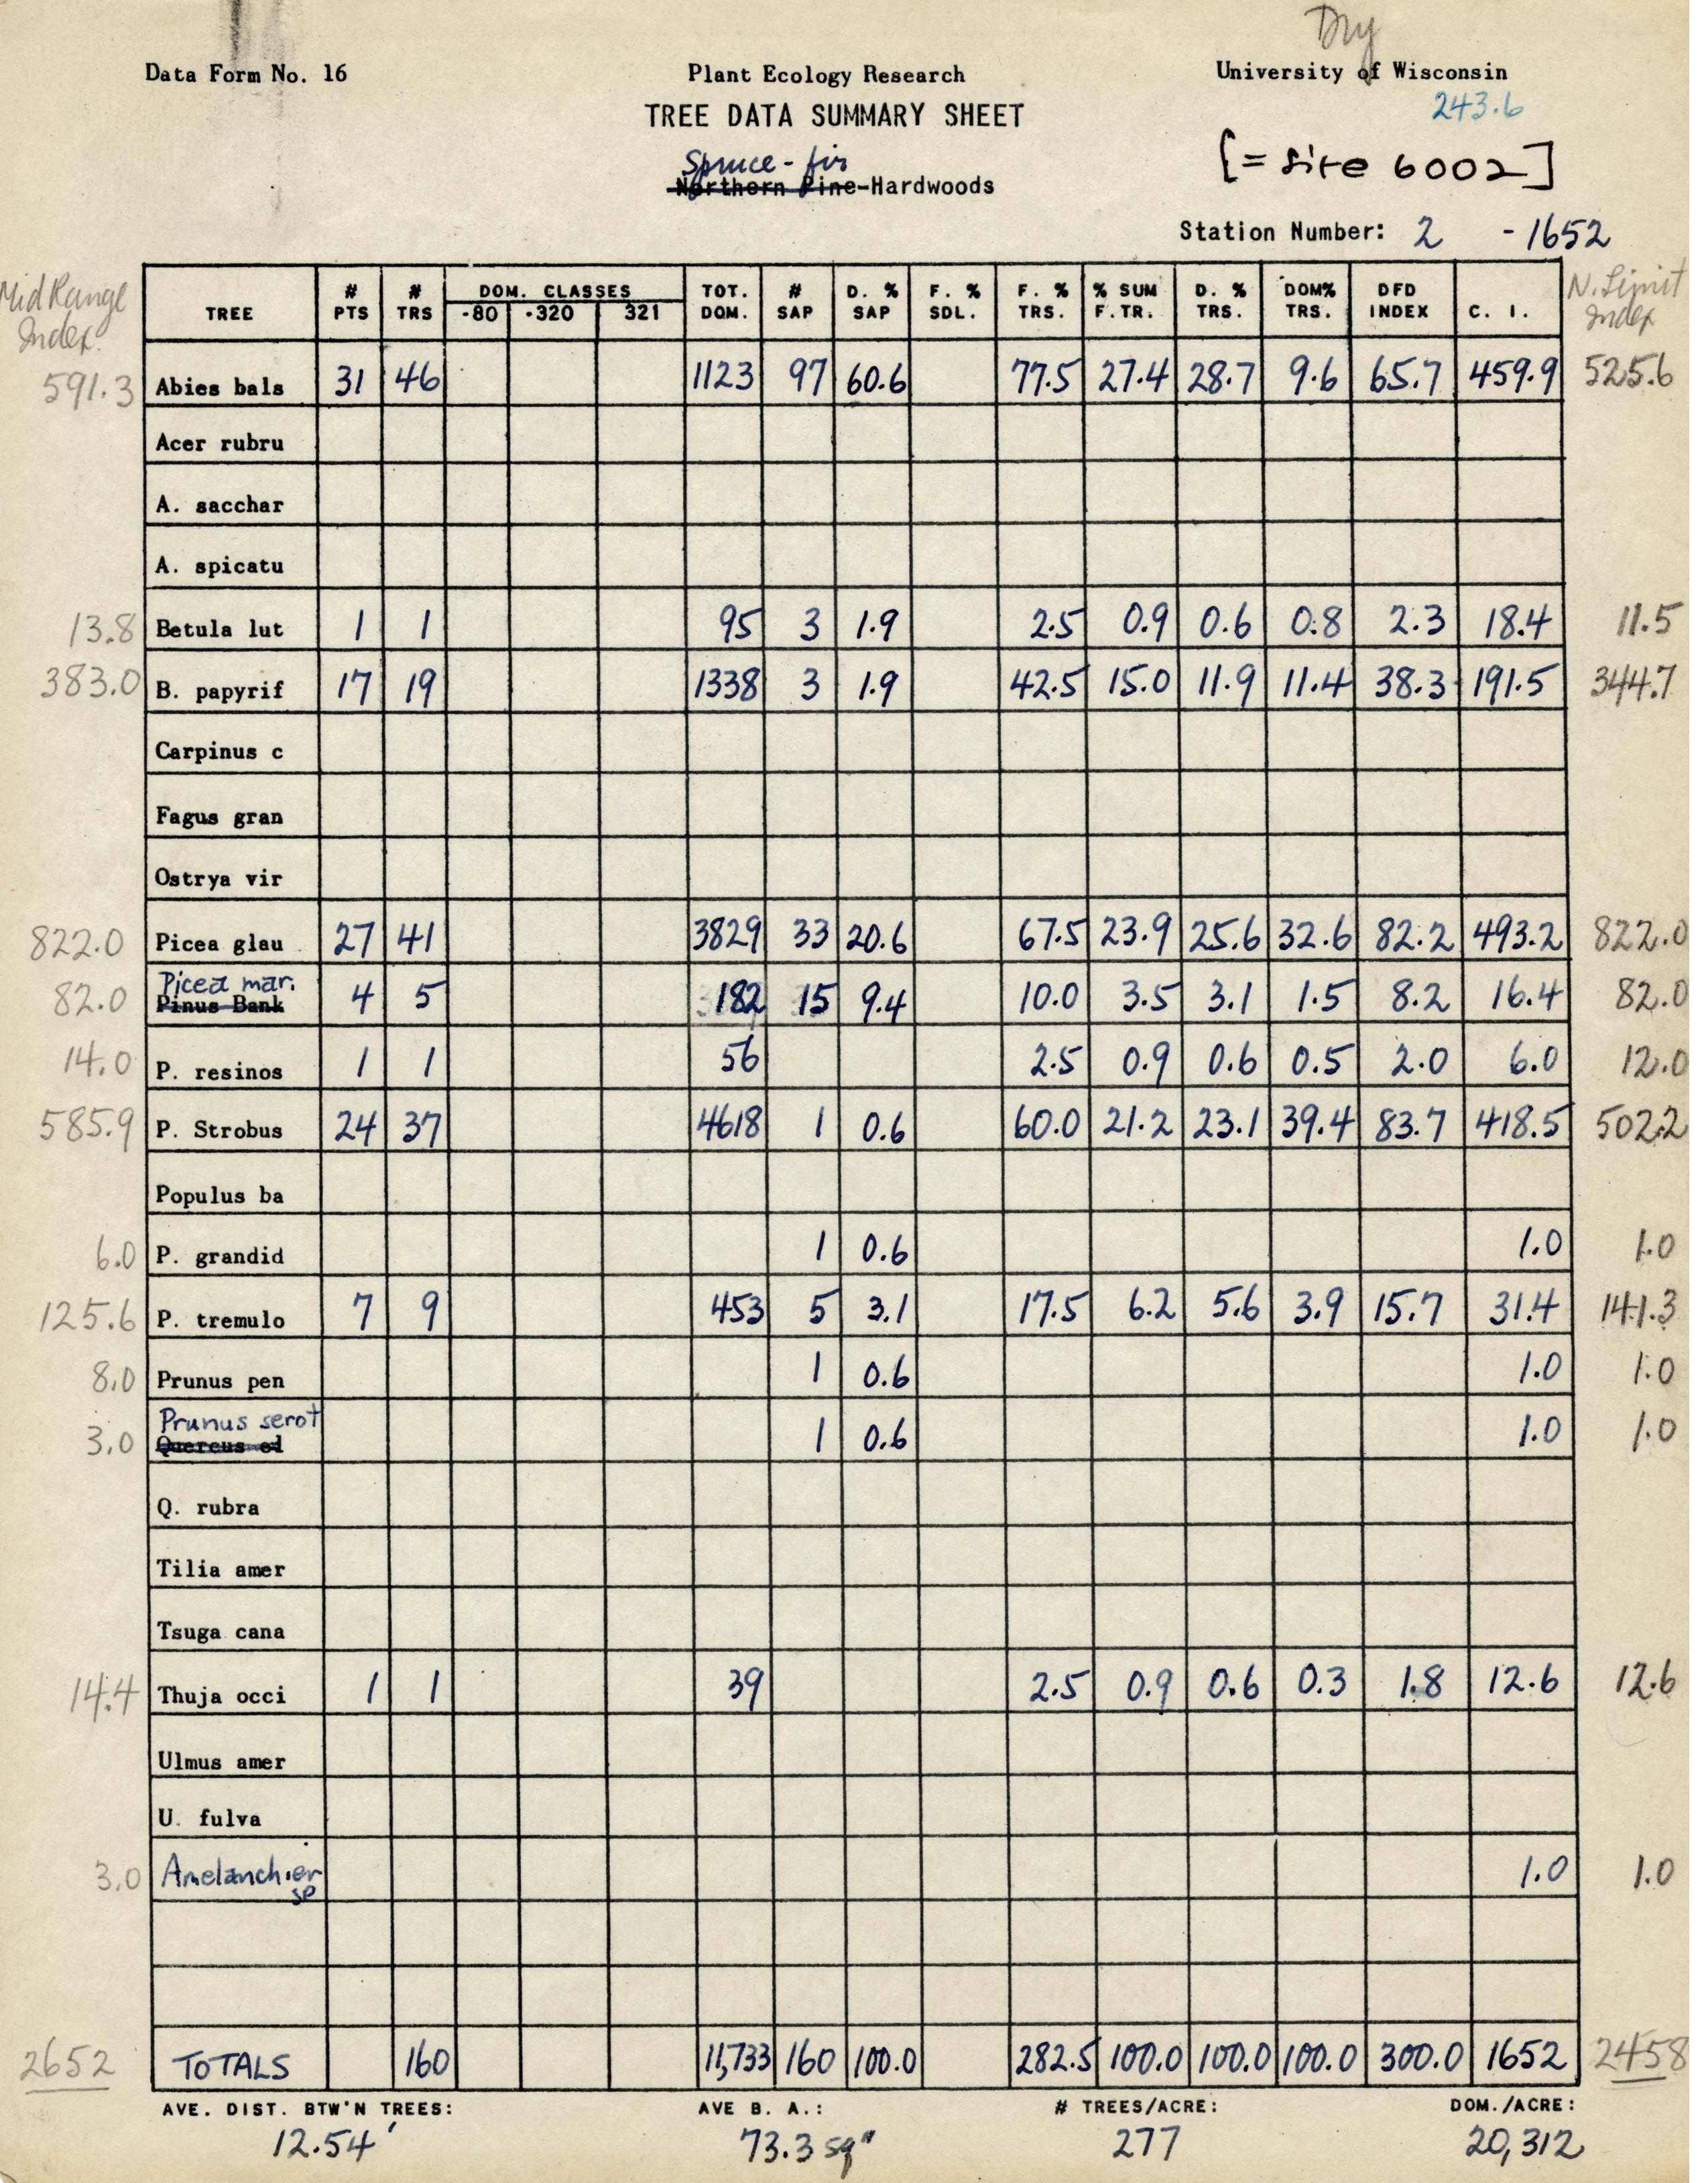 Dry
Data Form No. 16 Plant Ecology Research University of Wisconsin
243.6
TREE DATA SUMMARY SHEET
[= site 6002]
Spruce - fir
Northern Pine-Hardwoods
Station Number: 2 - 1652
Mid Range Index. TREE # PTS # TRS DOM. CLASSES -80 -320 321 TOT. DOM. # SAP D. % SAP F. % SDL. F. % TRS. % SUM F.TR. D. % TRS. DOM% TRS. DFD INDEX C. I. N. Limit Index
591.3 Abies bals 31 46 1123 97 60.6 77.5 27.4 28.7 9.6 65.7 459.9 525.6
Acer rubru
A. sacchar
A. spicatu
13.8 Betula lut 1 1 95 3 1.9 2.5 0.9 0.6 0.8 2.3 18.4 11.5
383.0 B. papyrif 17 19 1338 3 1.9 42.5 15.0 11.9 11.4 38.3 191.5 344.7
Carpinus c
Fagus gran
Ostrya vir
822.0 Picea glau 27 41 3829 33 20.6 67.5 23.9 25.6 32.6 82.2 493.2 822.0
Picea mar.
82.0 Pinus Bank 4 5 182 15 9.4 10.0 3.5 3.1 1.5 8.2 16.4 82.0
14.0 P. resinos 1 1 56 2.5 0.9 0.6 0.5 2.0 6.0 12.0
585.9 P. Strobus 24 37 4618 1 0.6 60.0 21.2 23.1 39.4 83.7 418.5 502.2
Populus ba
6.0 P. grandid 1 0.6 1.0 1.0
125.6 P. tremulo 7 9 453 5 3.1 17.5 6.2 5.6 3.9 15.7 31.4 141.3
8.0 Prunus pen 1 0.6 1.0 1.0
Prunus serot
3.0 Quercus el 1 0.6 1.0 1.0
Q. rubra
Tilia amer
Tsuga cana
14.4 Thuja occi 1 1 39 2.5 0.9 0.6 0.3 1.8 12.6 12.6
Ulmus amer
U. fulva
3.0 Amelanchier sp 1.0 1.0
2652 TOTALS 160 11,733 160 100.0 282.5 100.0 100.0 100.0 300.0 1652 2458
AVE. DIST. BTW'N TREES: AVE B. A.: # TREES/ACRE: DOM./ACRE:
12.54' 73.3 sq" 277 20,312